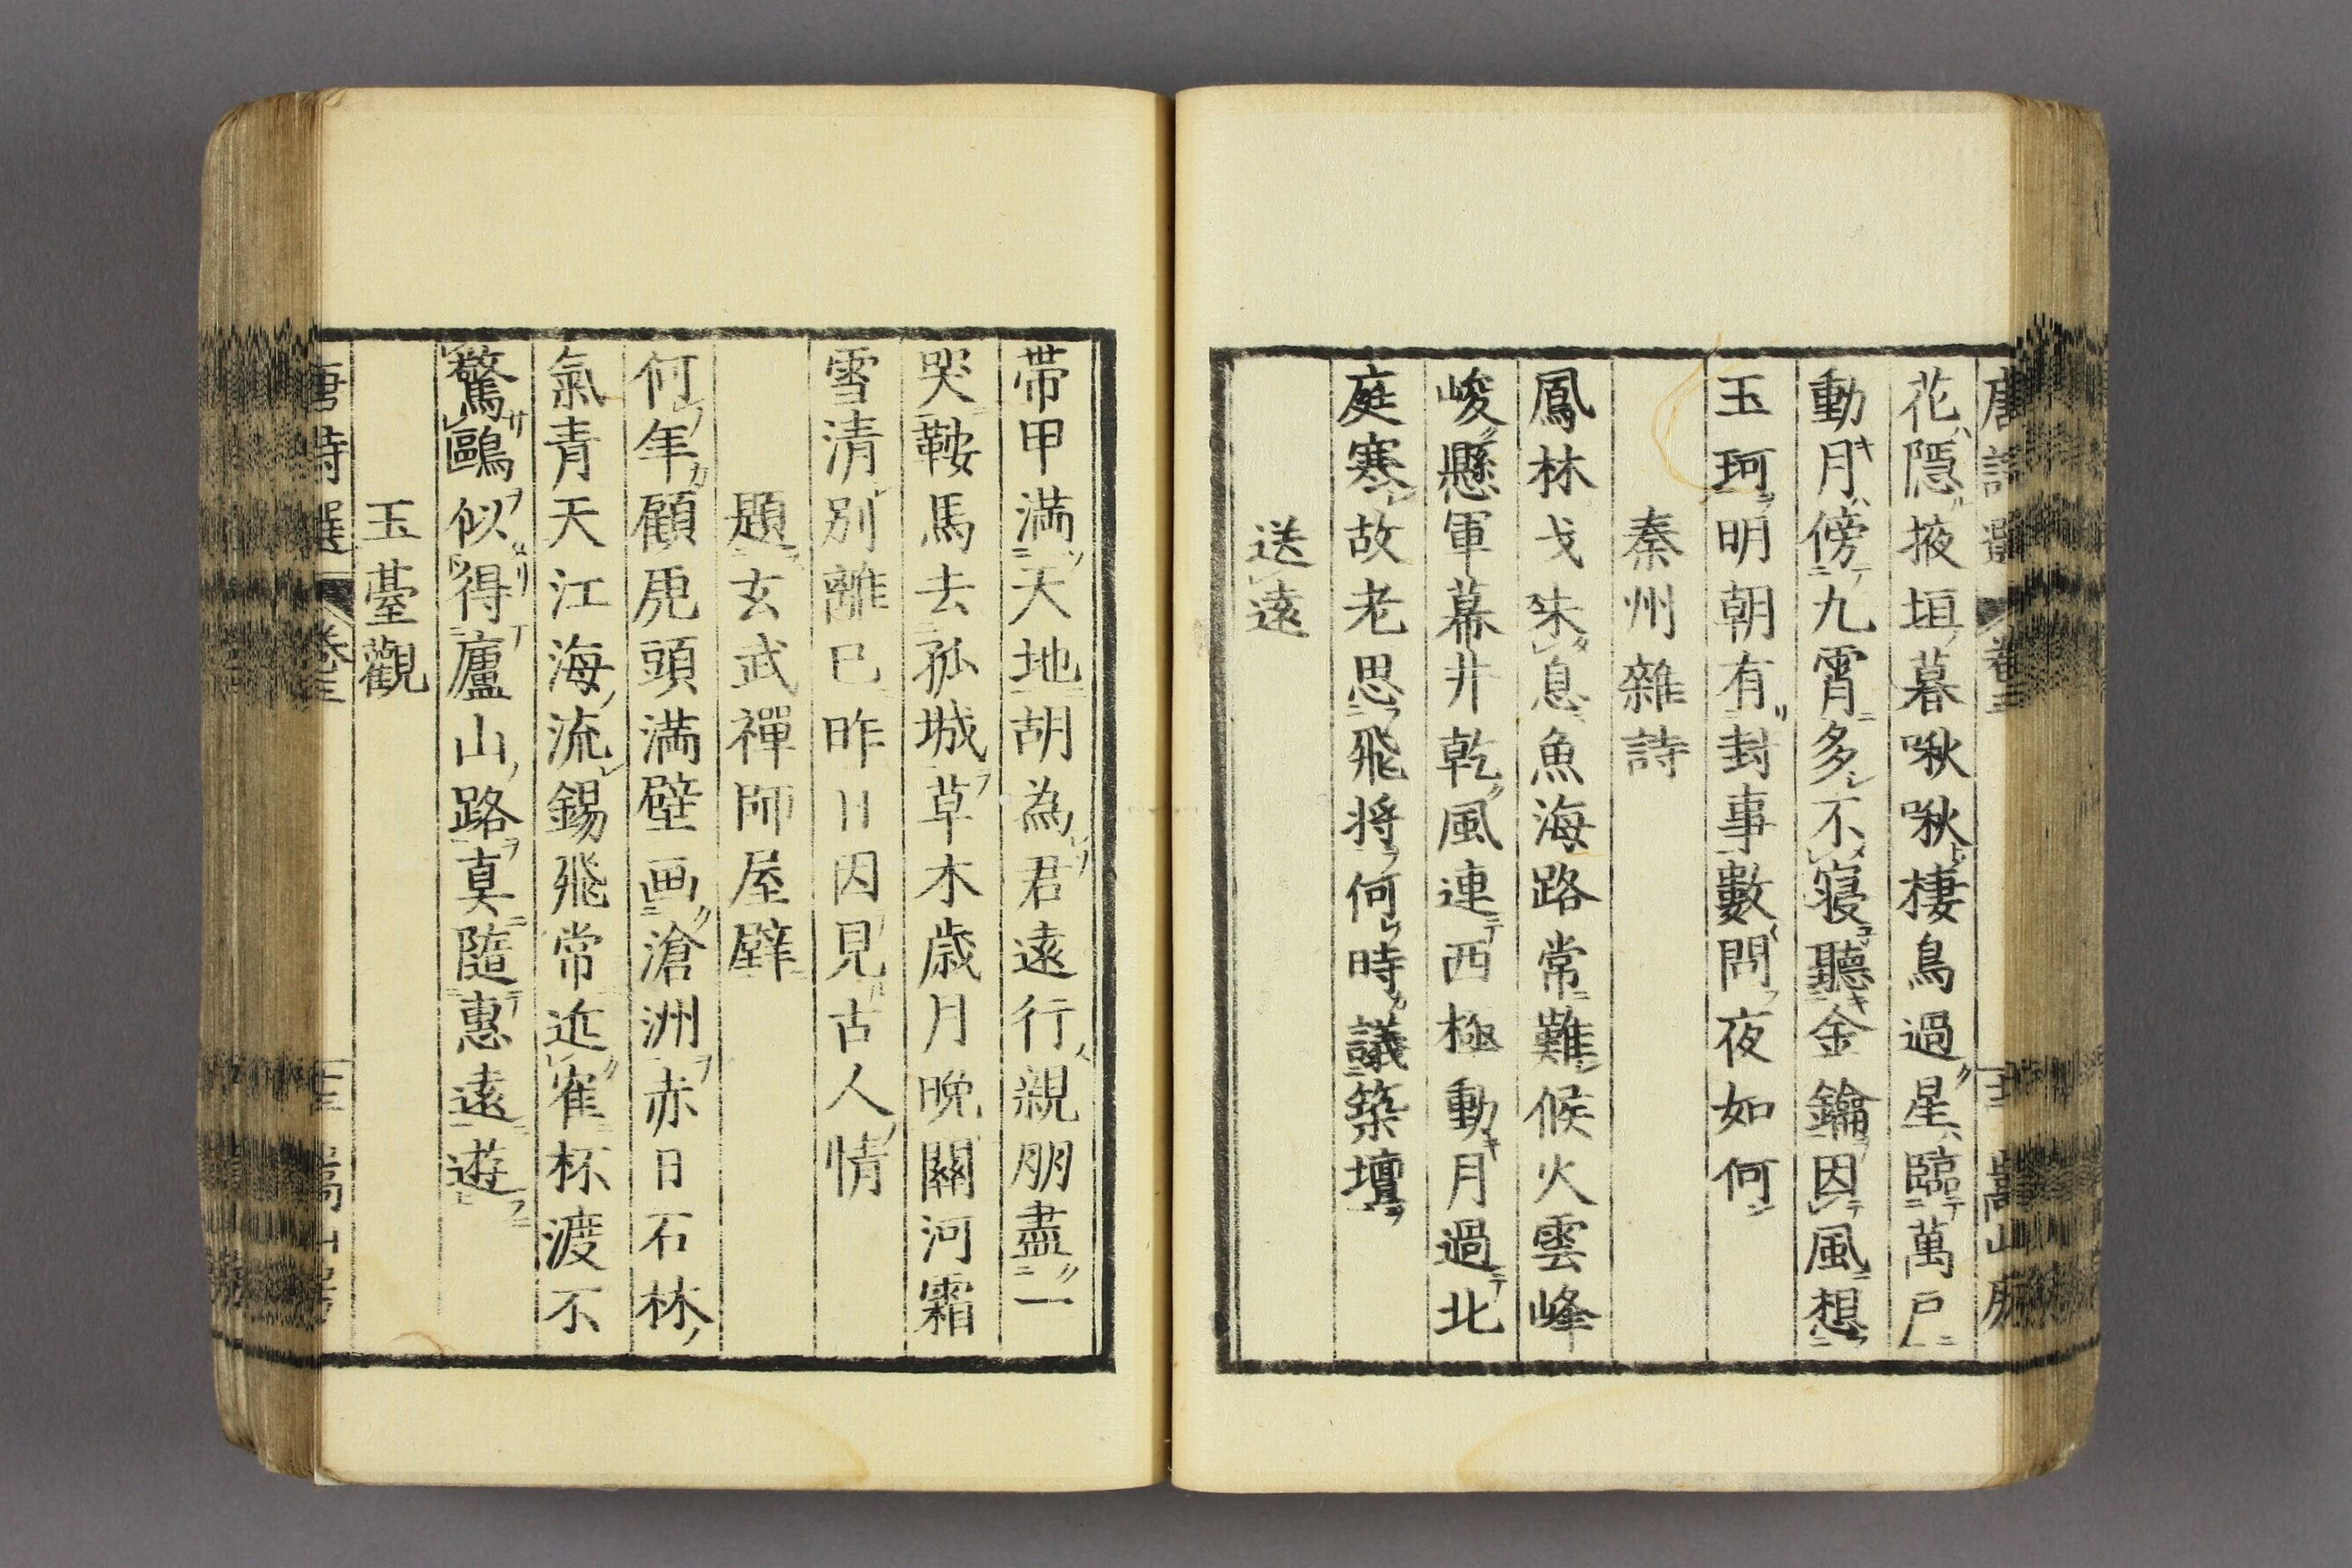 花隱掖垣暮啾啾棲鳥過星臨萬戸
動月傍九霄多不寝聽金鑰因風想
玉珂明朝有封事數問夜如何
秦州雜詩
鳳林戈未息魚海路常難候火雲峰
峻懸軍幕井乾風連西極動月過北
庭寒故老思飛将何時議築壇
送遠
帯甲満天地胡為君遠行親朋盡一
哭鞍馬去孤城草木歳月晩關河霜
雪清別離已昨日因見古人情
題玄武禪師屋壁
何年顧虎頭満壁画滄洲赤日石林
氣青天江海流錫飛常近隺杯渡不
驚鷗似得廬山路真隨惠遠遊
玉臺觀
唐詩選 卷三